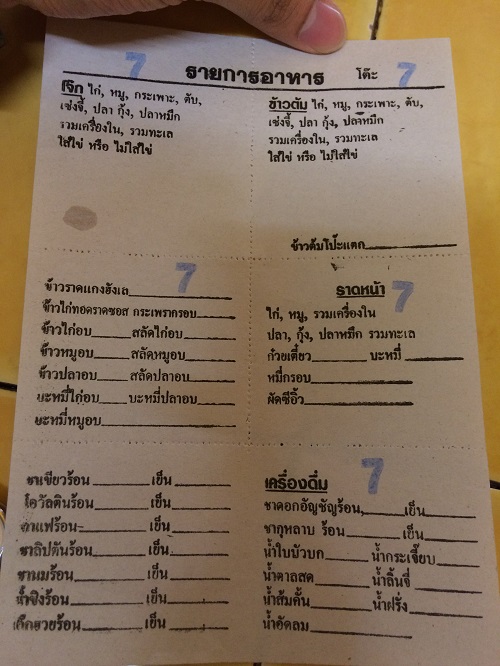 7
รายการอาหาร โต๊ะ 7
โจ๊ก ไก่, หมู, กระเพาะ, ตับ,
เซ่งจี้, ปลา กุ้ง, ปลาหมึก
รวมเครื่องใน, รวมทะเล
ใส่ไข่ หรือ ไม่ใส่ไข่
ข้าวต้ม ไก่, หมู, กระเพาะ, ตับ,
เซ่งจี้, ปลา กุ้ง, ปลาหมึก
รวมเครื่องใน, รวมทะเล
ใส่ไข่ หรือ ไม่ใส่ไข่
ข้าวต้มโป๊ะแตก
7
ข้าวราดแกงฮังเล
ข้าวไก่ทอดราดซอส กระเพรากรอบ
ข้าวไก่อบ สลัดไก่อบ
ข้าวหมูอบ สลัดหมูอบ
ข้าวปลาอบ สลัดปลาอบ
บะหมี่ไก่อบ บะหมี่ปลาอบ
บะหมี่หมูอบ
ราดหน้า 7
ไก่, หมู, รวมเครื่องใน
ปลา, กุ้ง, ปลาหมึก รวมทะเล
ก๋วยเตี๋ยว บะหมี่
หมี่กรอบ
ผัดซีอิ้ว
ชาเขียวร้อน เย็น
โอวัลตินร้อน เย็น
กาแฟร้อน เย็น
ชาลิปตันร้อน เย็น
ชานมร้อน เย็น
น้ำขิงร้อน เย็น
เก๊กฮวยร้อน เย็น
เครื่องดื่ม 7
ชาดอกอัญชัญร้อน, เย็น
ชากุหลาบ ร้อน เย็น
น้ำใบบัวบก น้ำกระเจี๊ยบ
น้ำตาลสด น้ำลิ้นจี่
น้ำส้มคั้น น้ำฝรั่ง
น้ำอัดลม